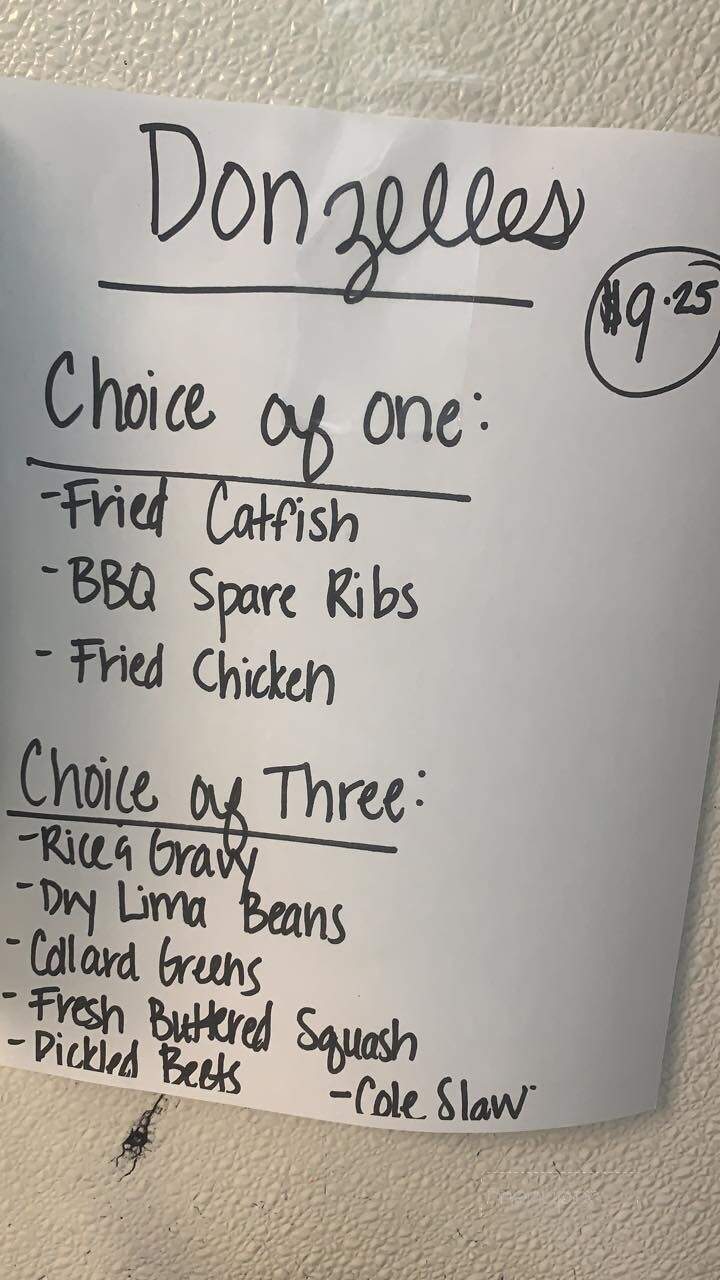 Donzelles
$9.25
Choice of one:
-Fried Catfish
-BBQ Spare Ribs
- Fried Chicken
Choice of Three:
-Rice & Gravy
-Dry Lima Beans
-Collard Greens
- Fresh Buttered Squash
-Pickled Beets
-Cole Slaw